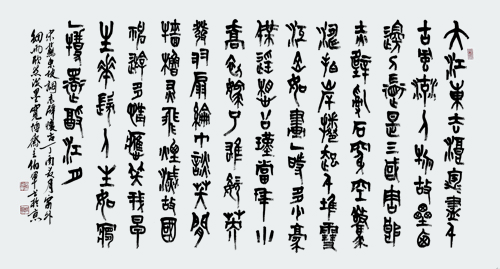 大江東去浪淘盡千
古風流人物故壘西
邊人道是三國周郎
赤壁亂石穿空驚
濤拍岸捲起千堆雪
江山如畫一時多少豪
傑遙想公瑾當年小
喬初嫁了雄姿英
發羽扇綸巾談笑間
檣櫓灰飛煙滅故國
神遊多情應笑我早
生華髮人生如夢
一樽還酹江月
宋蘇東坡詞赤壁懷古丁酉